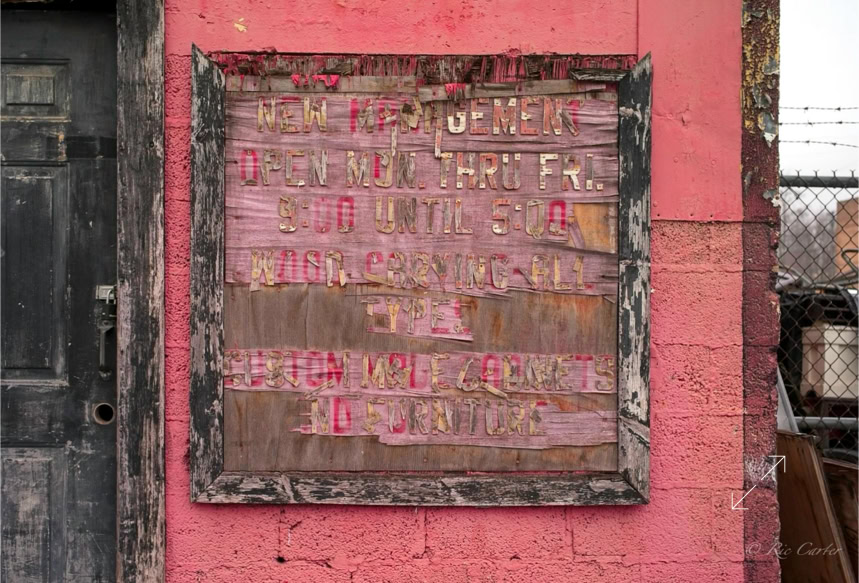 NEW MANAGEMENT
OPEN MON. THRU FRI.
9:00 UNTIL 5:00
WOOD CARVING ALL
TYPE
CUSTOM MADE CABINETS
ND FURNITURE
© Ric Carter